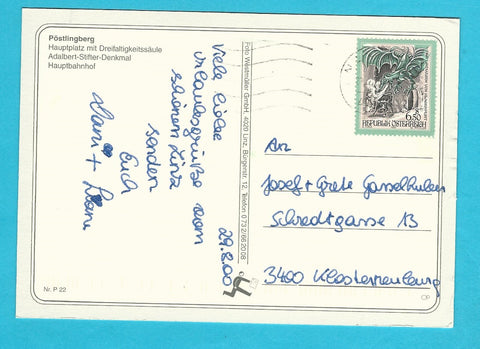 Pöstlingberg
Hauptplatz mit Dreifaltigkeitssäule
Adalbert-Stifter-Denkmal
Hauptbahnhof
29.8.00
Viele liebe
Urlaubsgrüße vom
schönen Linz
senden
Euch
Foto Westmüller GmbH, 4020 Linz, Bürgerstr. 12, Telefon 0732/662008
6.50
REPUBLIK ÖSTERREICH
An
Josef + Grete
Schredtgasse 13
3400 Klosterneuburg
Nr. P 22
CP